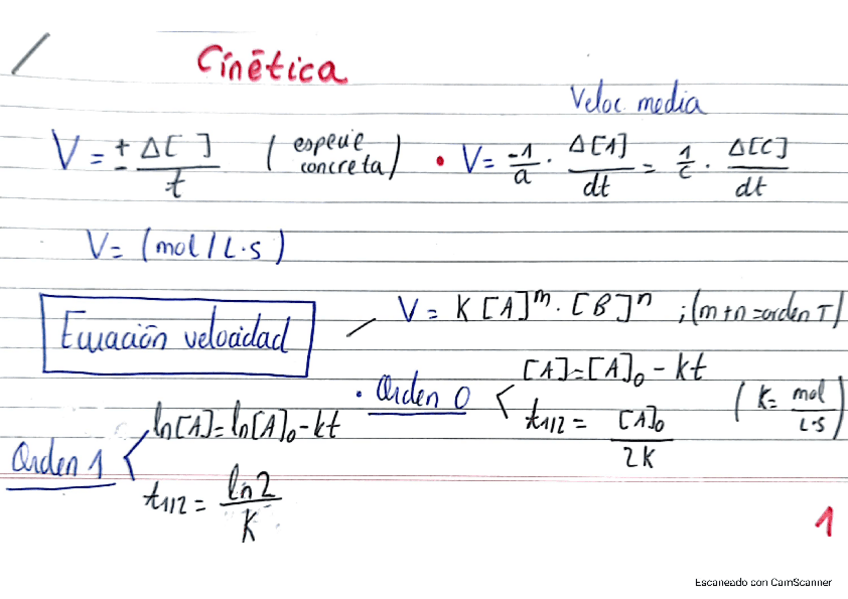 Cinética
Veloc media
V = ± Δ[ ] / t (especie concreta) • V = -1/a · Δ[A]/dt = 1/c · Δ[C]/dt
V = (mol / L·s)
Ecuación velocidad / V = K [A]^m · [B]^n ; (m+n = orden T)
• Orden 0 < [A] = [A]₀ - kt
t1/2 = [A]₀ / 2K (K = mol / L·s)
Orden 1 < ln[A] = ln[A]₀ - kt
t1/2 = ln 2 / K
1
Escaneado con CamScanner